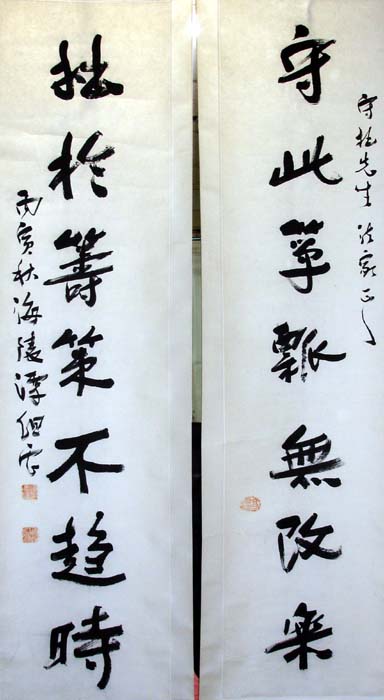 守拙先生法家正之
守此箪瓢無改樂
拙於籌策不趨時
丙寅秋海陵潭組雲